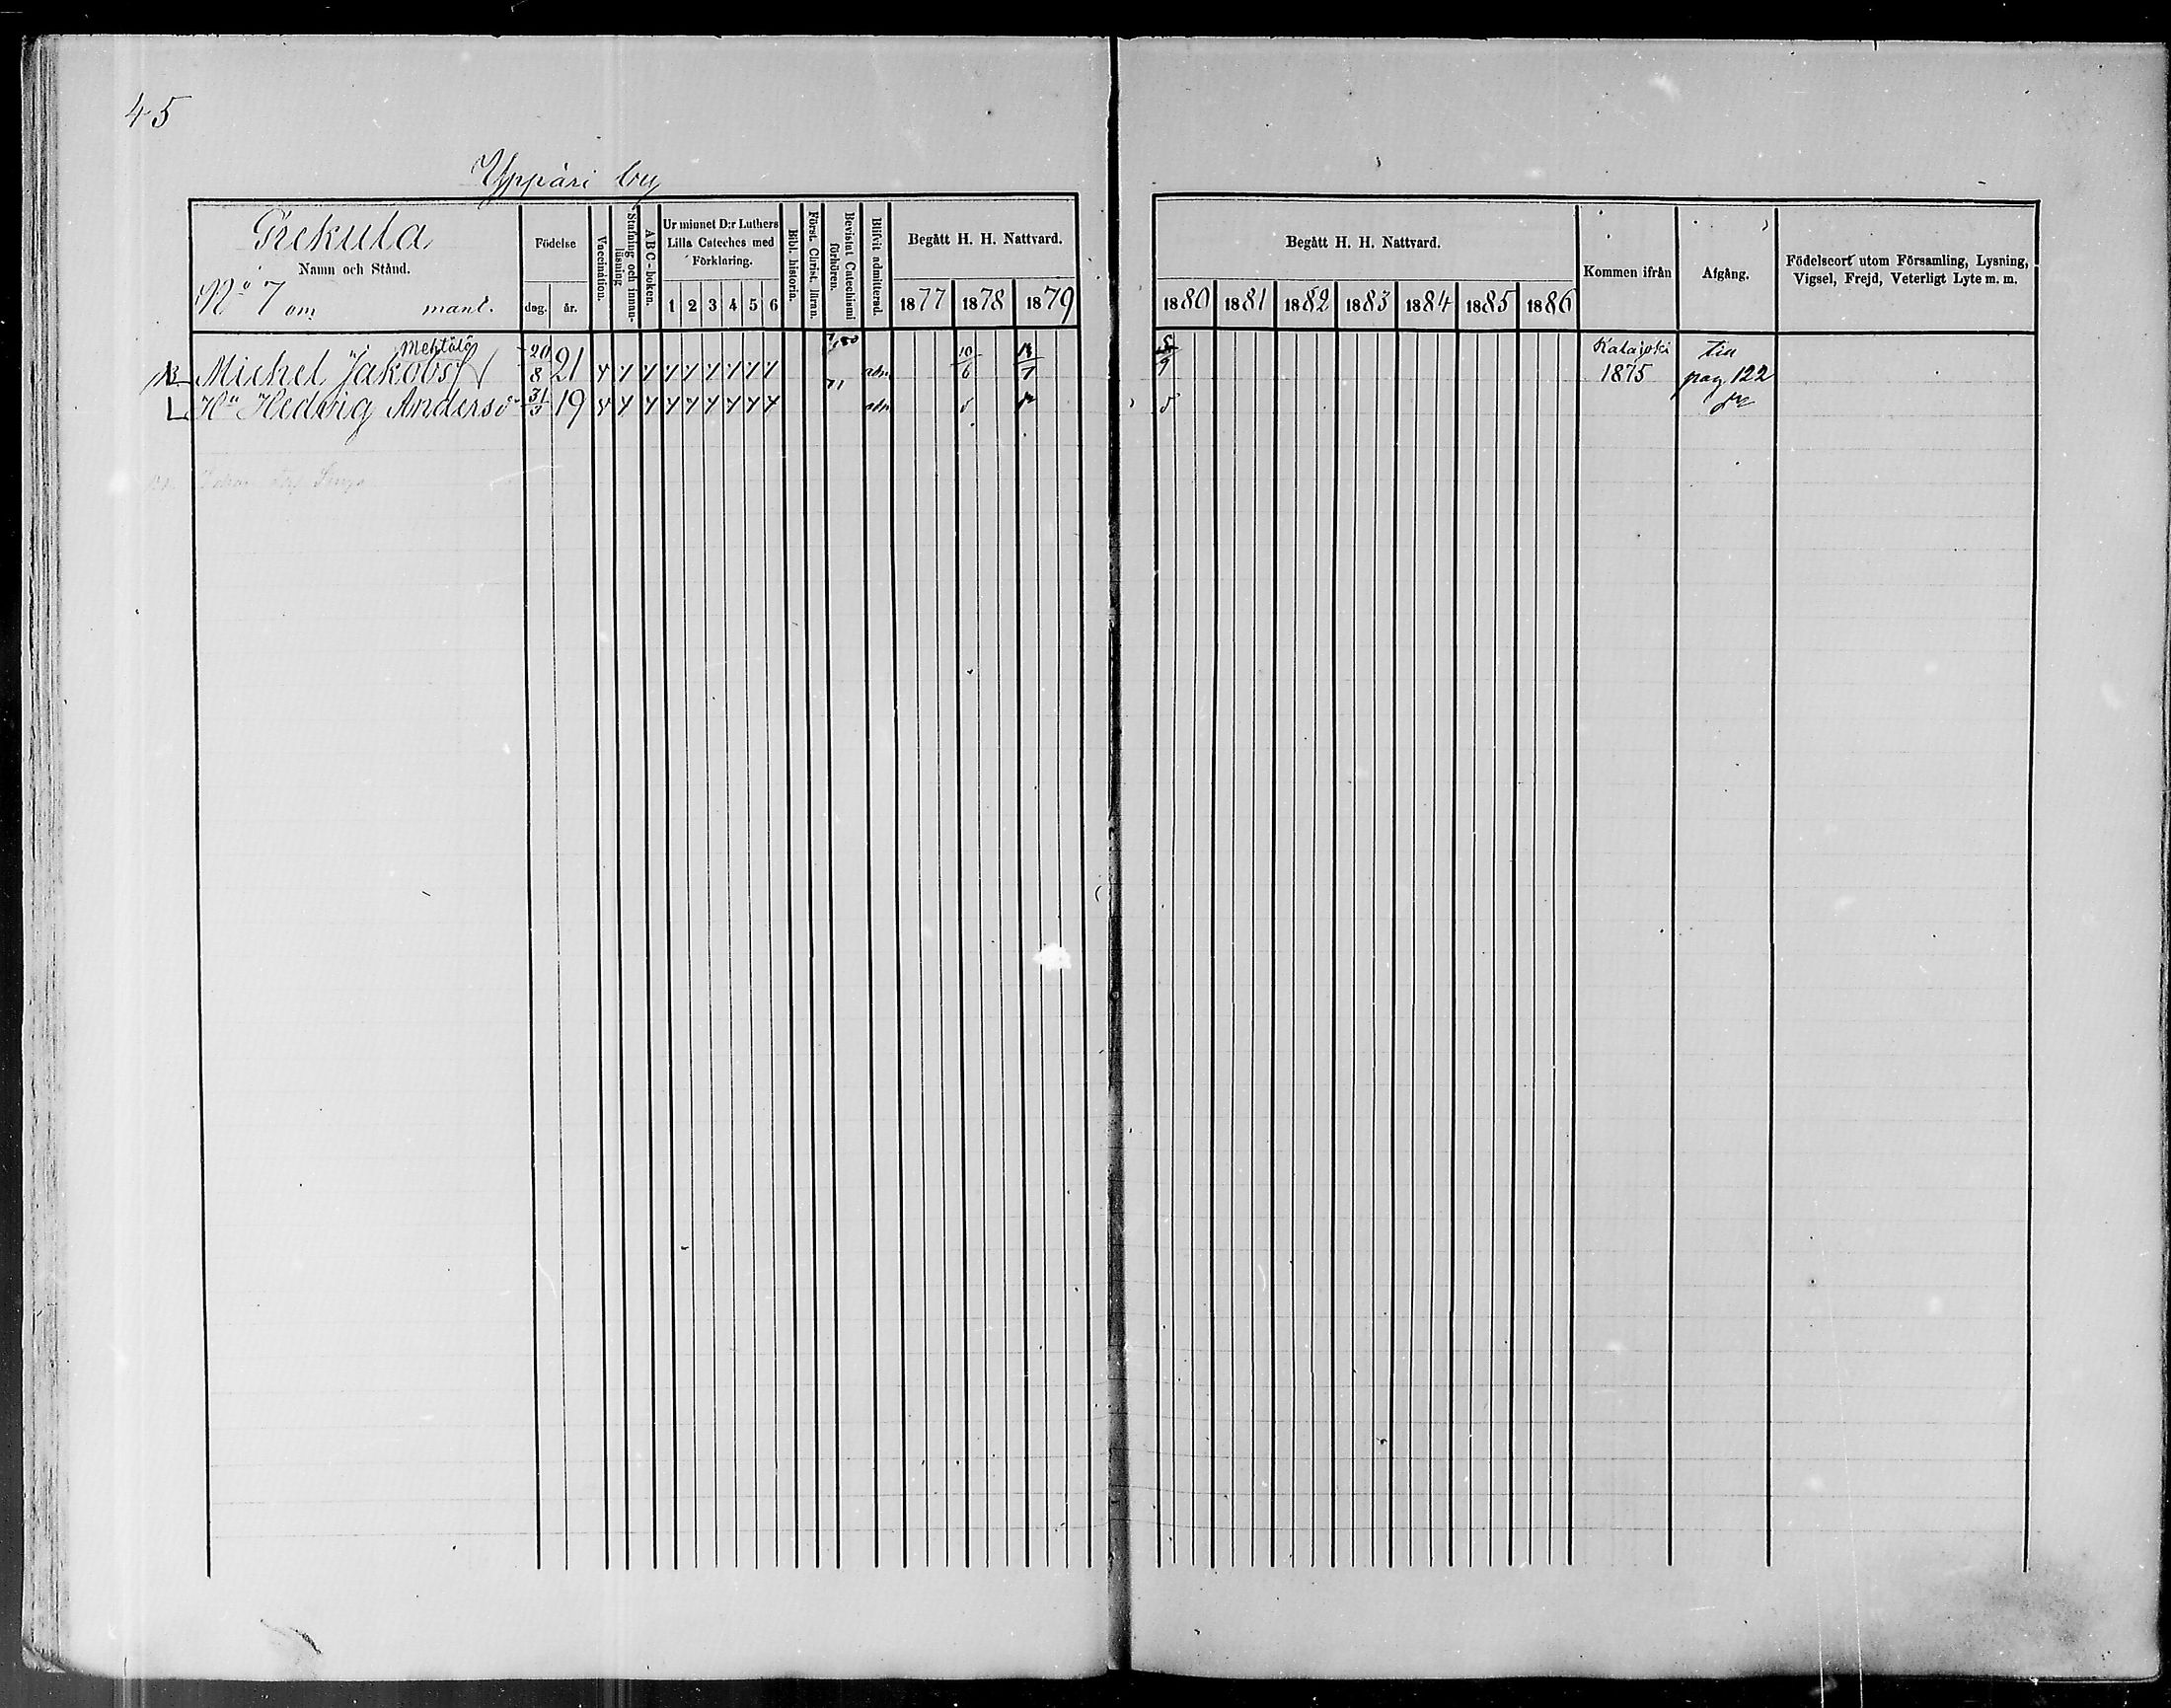 45
Yppäri by
Prekula
Namn och Stånd.
No 7 om mant.
Födelse
dag. år.
Vaccination.
Stafning och innanläsning
A B C-boken.
Ur minnet D:r Luthers Lilla Cateches med Förklaring.
1 2 3 4 5 6
Bibl. historia.
Först. Christ. läran.
Bevistat Catechismi förhören.
Blifvit admitterad.
Begått H. H. Nattvard.
1877 1878 1879
Begått H. H. Nattvard.
1880 1881 1882 1883 1884 1885 1886
Kommen ifrån
Afgång.
Födelseort utom Församling, Lysning, Vigsel, Frejd, Veterligt Lyte m. m.
Mehtälä
Michel Jakobsf 20/8 21 adm 10/6 Kalajoki 1875 till pag 122
Hu Hedvig Andersd 31/3 19 adm